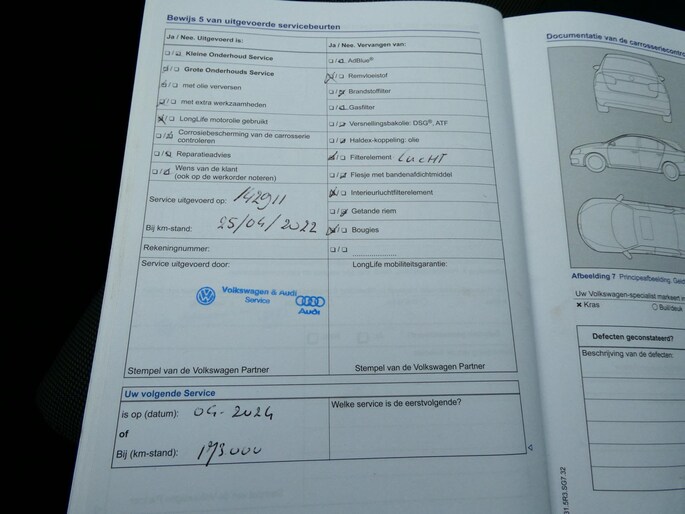 Bewijs 5 van uitgevoerde servicebeurten
Ja / Nee. Uitgevoerd is:
Kleine Onderhoud Service
Grote Onderhouds Service
met olie verversen
met extra werkzaamheden
LongLife motorolie gebruikt
Corrosiebescherming van de carrosserie
controleren
Reparatieadvies
Wens van de klant
(ook op de werkorder noteren)
Service uitgevoerd op: 142911
Bij km-stand: 25/04/2022
Rekeningnummer:
Ja / Nee. Vervangen van:
AdBlue®
Remvloeistof
Brandstoffilter
Gasfilter
Versnellingsbakolie: DSG®, ATF
Haldex-koppeling: olie
Filterelement LUCHT
Flesje met bandenafdichtmiddel
Interieurluchtfilterelement
Getande riem
Bougies
Service uitgevoerd door:
Volkswagen & Audi
Service
Audi
Stempel van de Volkswagen Partner
LongLife mobiliteitsgarantie:
Stempel van de Volkswagen Partner
Uw volgende Service
is op (datum): 04-2024
of
Bij (km-stand): 173.000
Welke service is de eerstvolgende?
Documentatie van de carrosseriecontro
Afbeelding 7 Principeafbeelding.
Uw Volkswagen-specialist markeert in
× Kras
Defecten geconstateerd?
Beschrijving van de defecten: